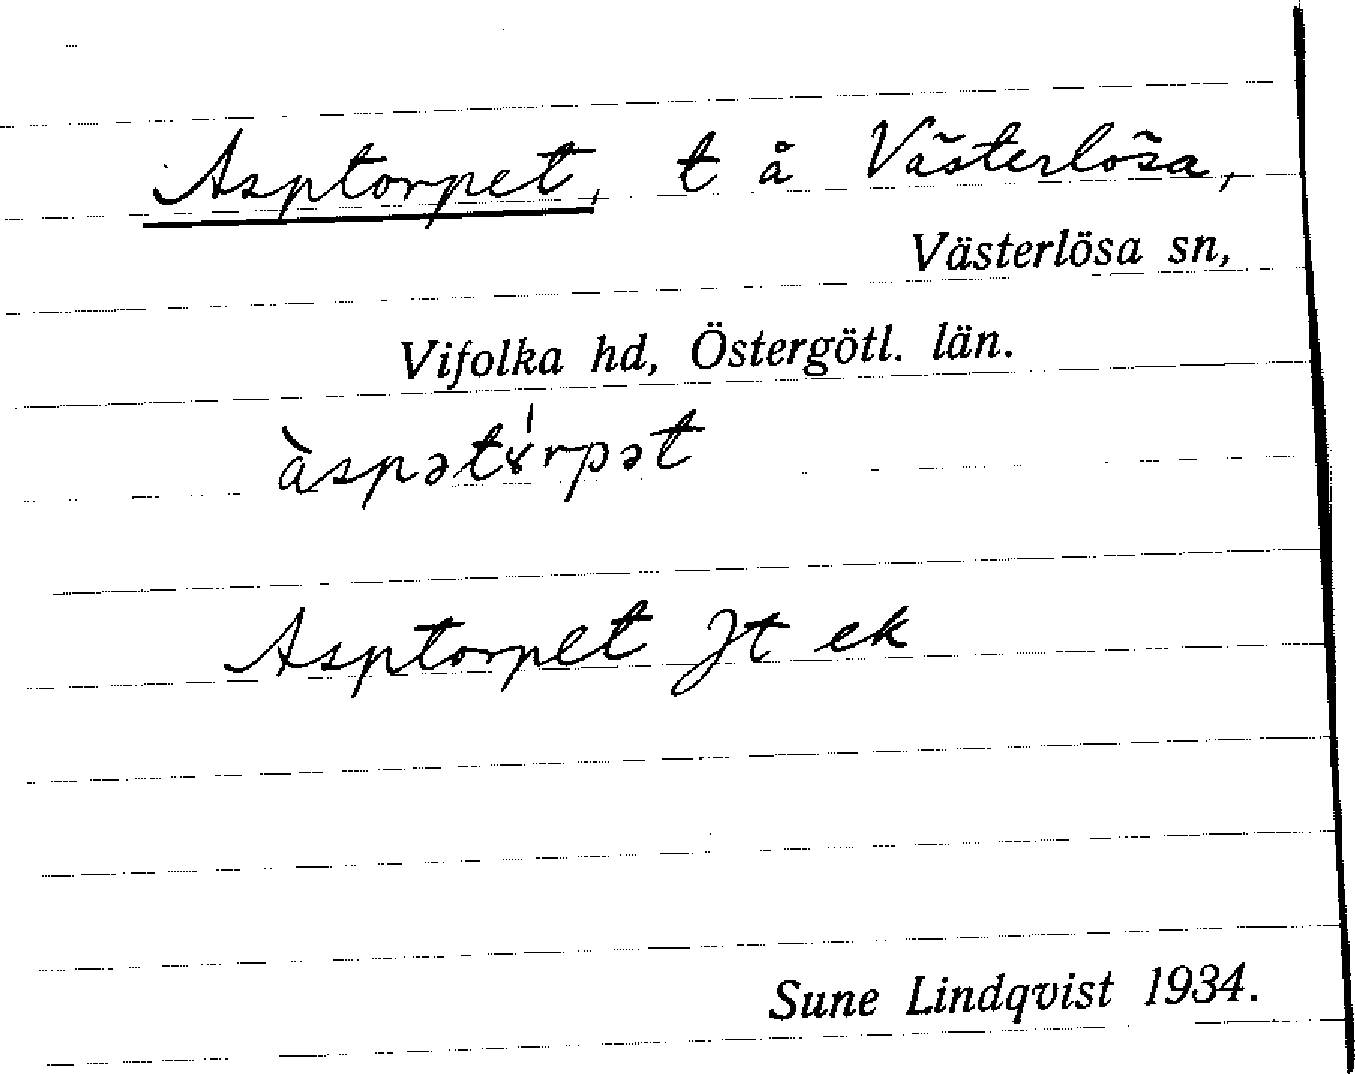 Asptorpet, t å Västerlösa,
Västerlösa sn,
Vifolka hd, Östergötl. län.
àspətɤ́rpət
Asptorpet Jt ek
Sune Lindqvist 1934.